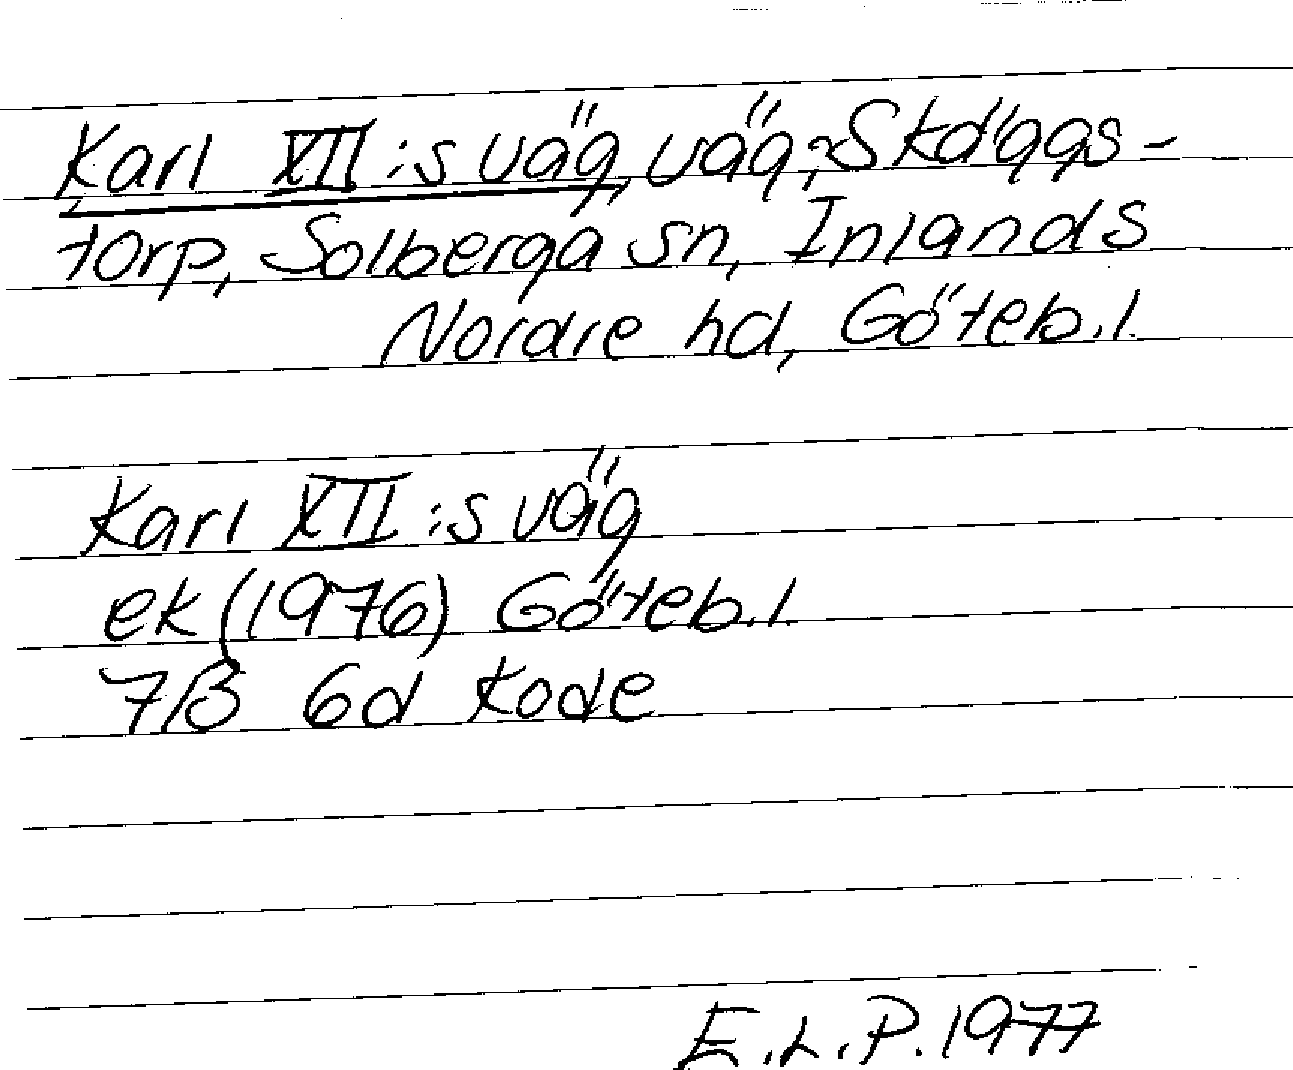 Karl XII:s väg, väg, Skäggs-
torp, Solberga sn, Inlands
Nordre hd, Göteb.l.
Karl XII:s väg
ek (1976) Göteb.l.
7B 6d Kode
E.L.P. 1977